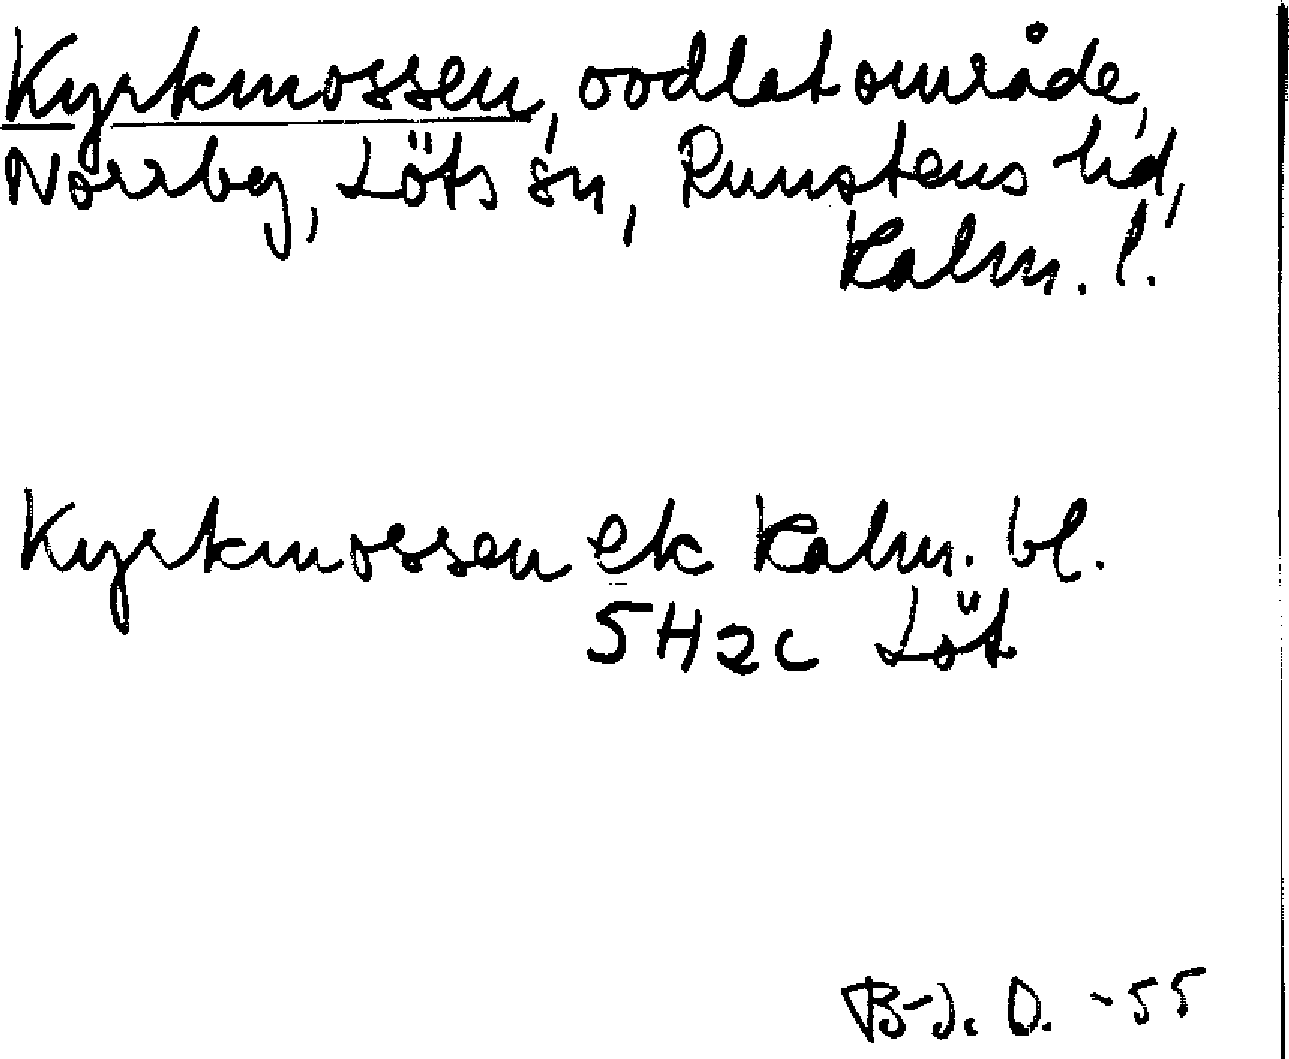 Kyrkmossen, oodlat område,
Norrby, Löts sn, Runstens hd,
Kalm. l.
Kyrkmossen ek Kalm. bl.
5H2c Löt
B-J. O. -55